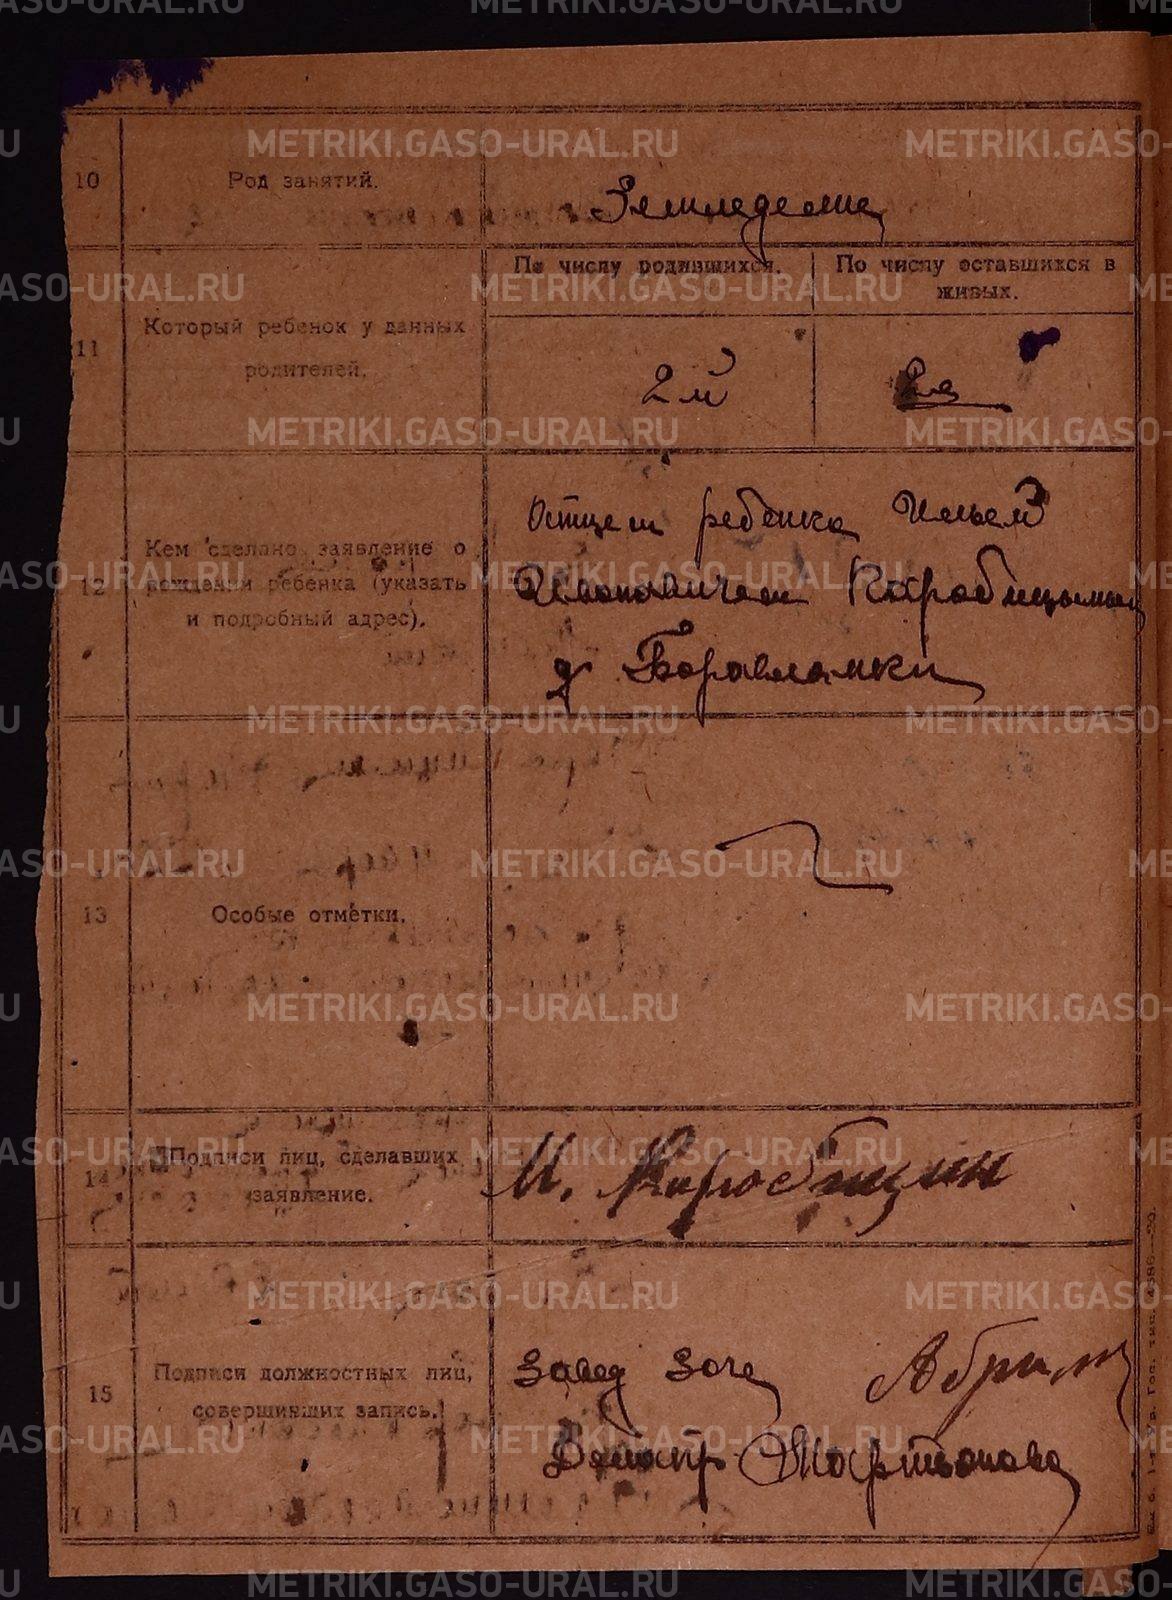 METRIKI.GASO-URAL.RU
10 Род занятий. Земледелие
11 Который ребенок у данных
родителей.
По числу родившихся.
2й
По числу оставшихся в
живых.
2й
12 Кем сделано заявление о
рождении ребенка (указать
и подробный адрес).
Отцем ребенка Ильей
Коробицыным
д
13 Особые отметки.
14 Подписи лиц, сделавших
заявление.
И. Коробицин
15 Подписи должностных лиц,
совершивших запись.
Завед Загс
Делопр Мартьянова